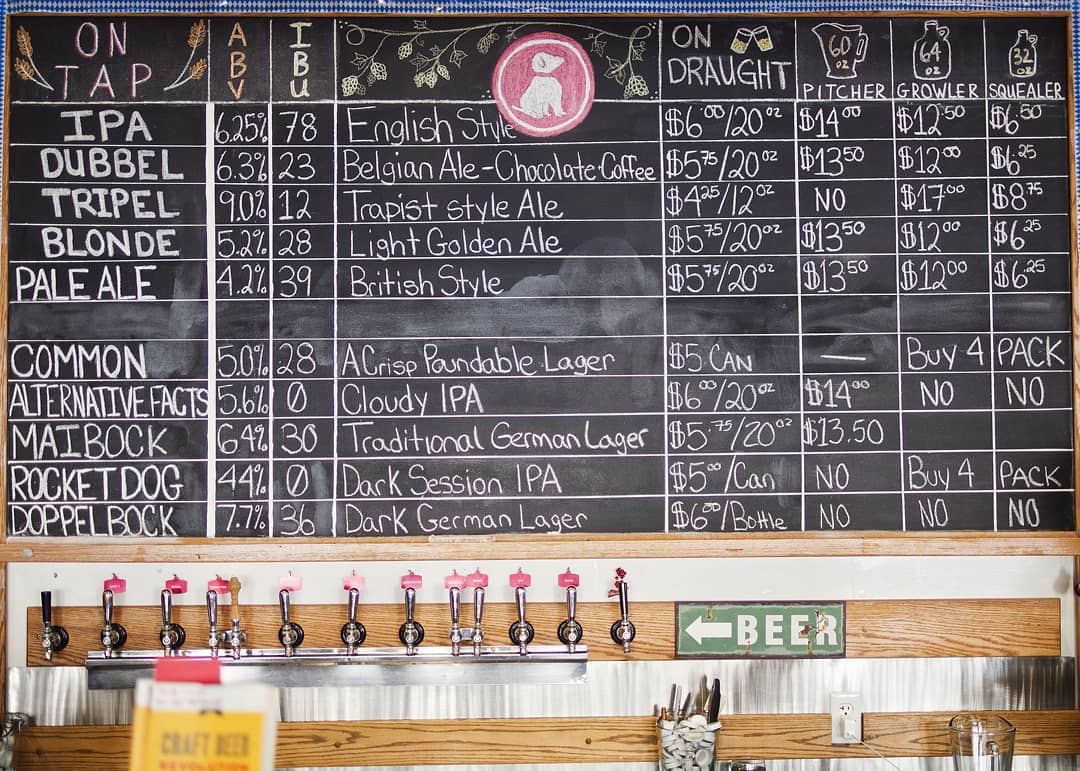 ON TAP ABV IBU ON DRAUGHT 60 OZ PITCHER 64 OZ GROWLER 32 OZ SQUEALER
IPA 6.25% 78 English Style $6.00/20oz $14.00 $12.50 $6.50
DUBBEL 6.3% 23 Belgian Ale-Chocolate·Coffee $5.75/20oz $13.50 $12.00 $6.25
TRIPEL 9.0% 12 Trapist style Ale $4.25/12oz NO $17.00 $8.75
BLONDE 5.2% 28 Light Golden Ale $5.75/20oz $13.50 $12.00 $6.25
PALE ALE 4.2% 39 British Style $5.75/20oz $13.50 $12.00 $6.25
COMMON 5.0% 28 A Crisp Poundable Lager $5 CAN — Buy 4 PACK
ALTERNATIVE FACTS 5.6% 0 Cloudy IPA $6.00/20oz $14.00 NO NO
MAIBOCK 64% 30 Traditional German Lager $5.75/20oz $13.50
ROCKET DOG 44% 0 Dark Session IPA $5.00/Can NO Buy 4 PACK
DOPPELBOCK 7.7% 36 Dark German Lager $6.00/Bottle NO NO NO
BEER
CRAFT BEER
REVOLUTION